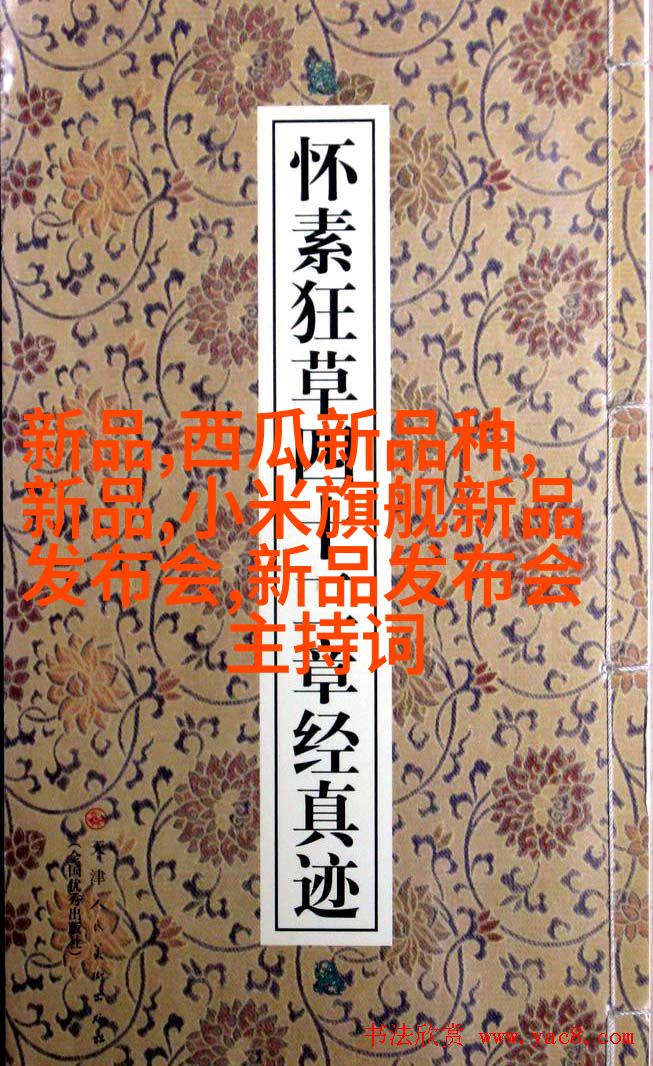 怀素狂草四十二章经真迹
新品,西瓜新品种,
新品,小米旗舰新品
发布会,新品发布会
主持词
天津人民美术出版社
(全国优秀出版社)
书法欣赏 www.yac8.com